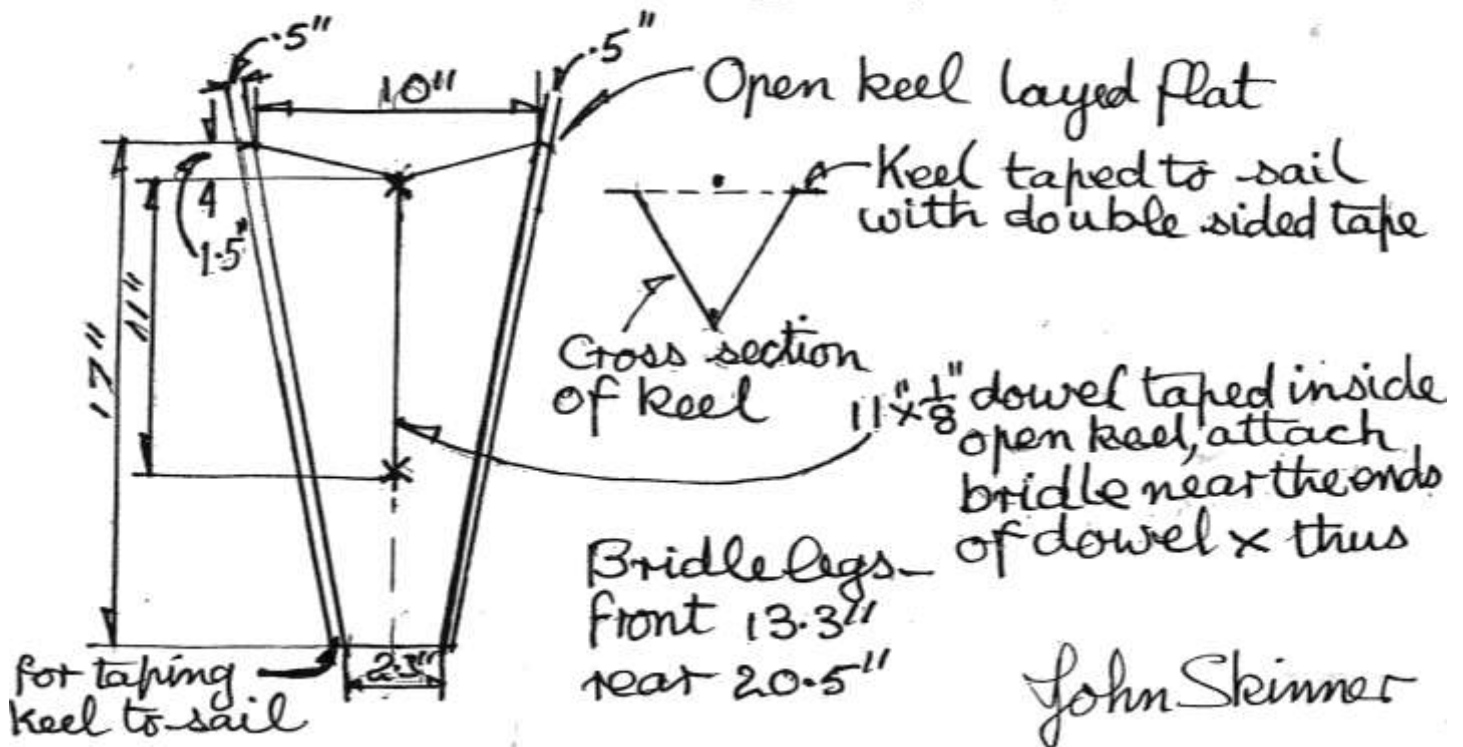 .5"
.5"
10"
Open keel layed flat
Keel taped to sail
with double sided tape
1.5"
11"
17"
Cross section
of keel
11" x 1/8" dowel taped inside
open keel, attach
bridle near the ends
of dowel x thus
Bridle legs-
front 13.3"
rear 20.5"
for taping
keel to sail
2.3"
John Skinner